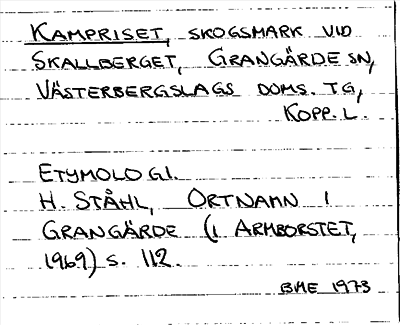 KAMPRISET, SKOGSMARK VID
SKALLBERGET, GRANGÄRDE SN,
VÄSTERBERGSLAGS DOMS. TG,
KOPP. L.
ETYMOLOGI.
H. STÅHL, ORTNAMN I
GRANGÄRDE (I ARMBORSTET,
1969) S. 112.
BME 1973